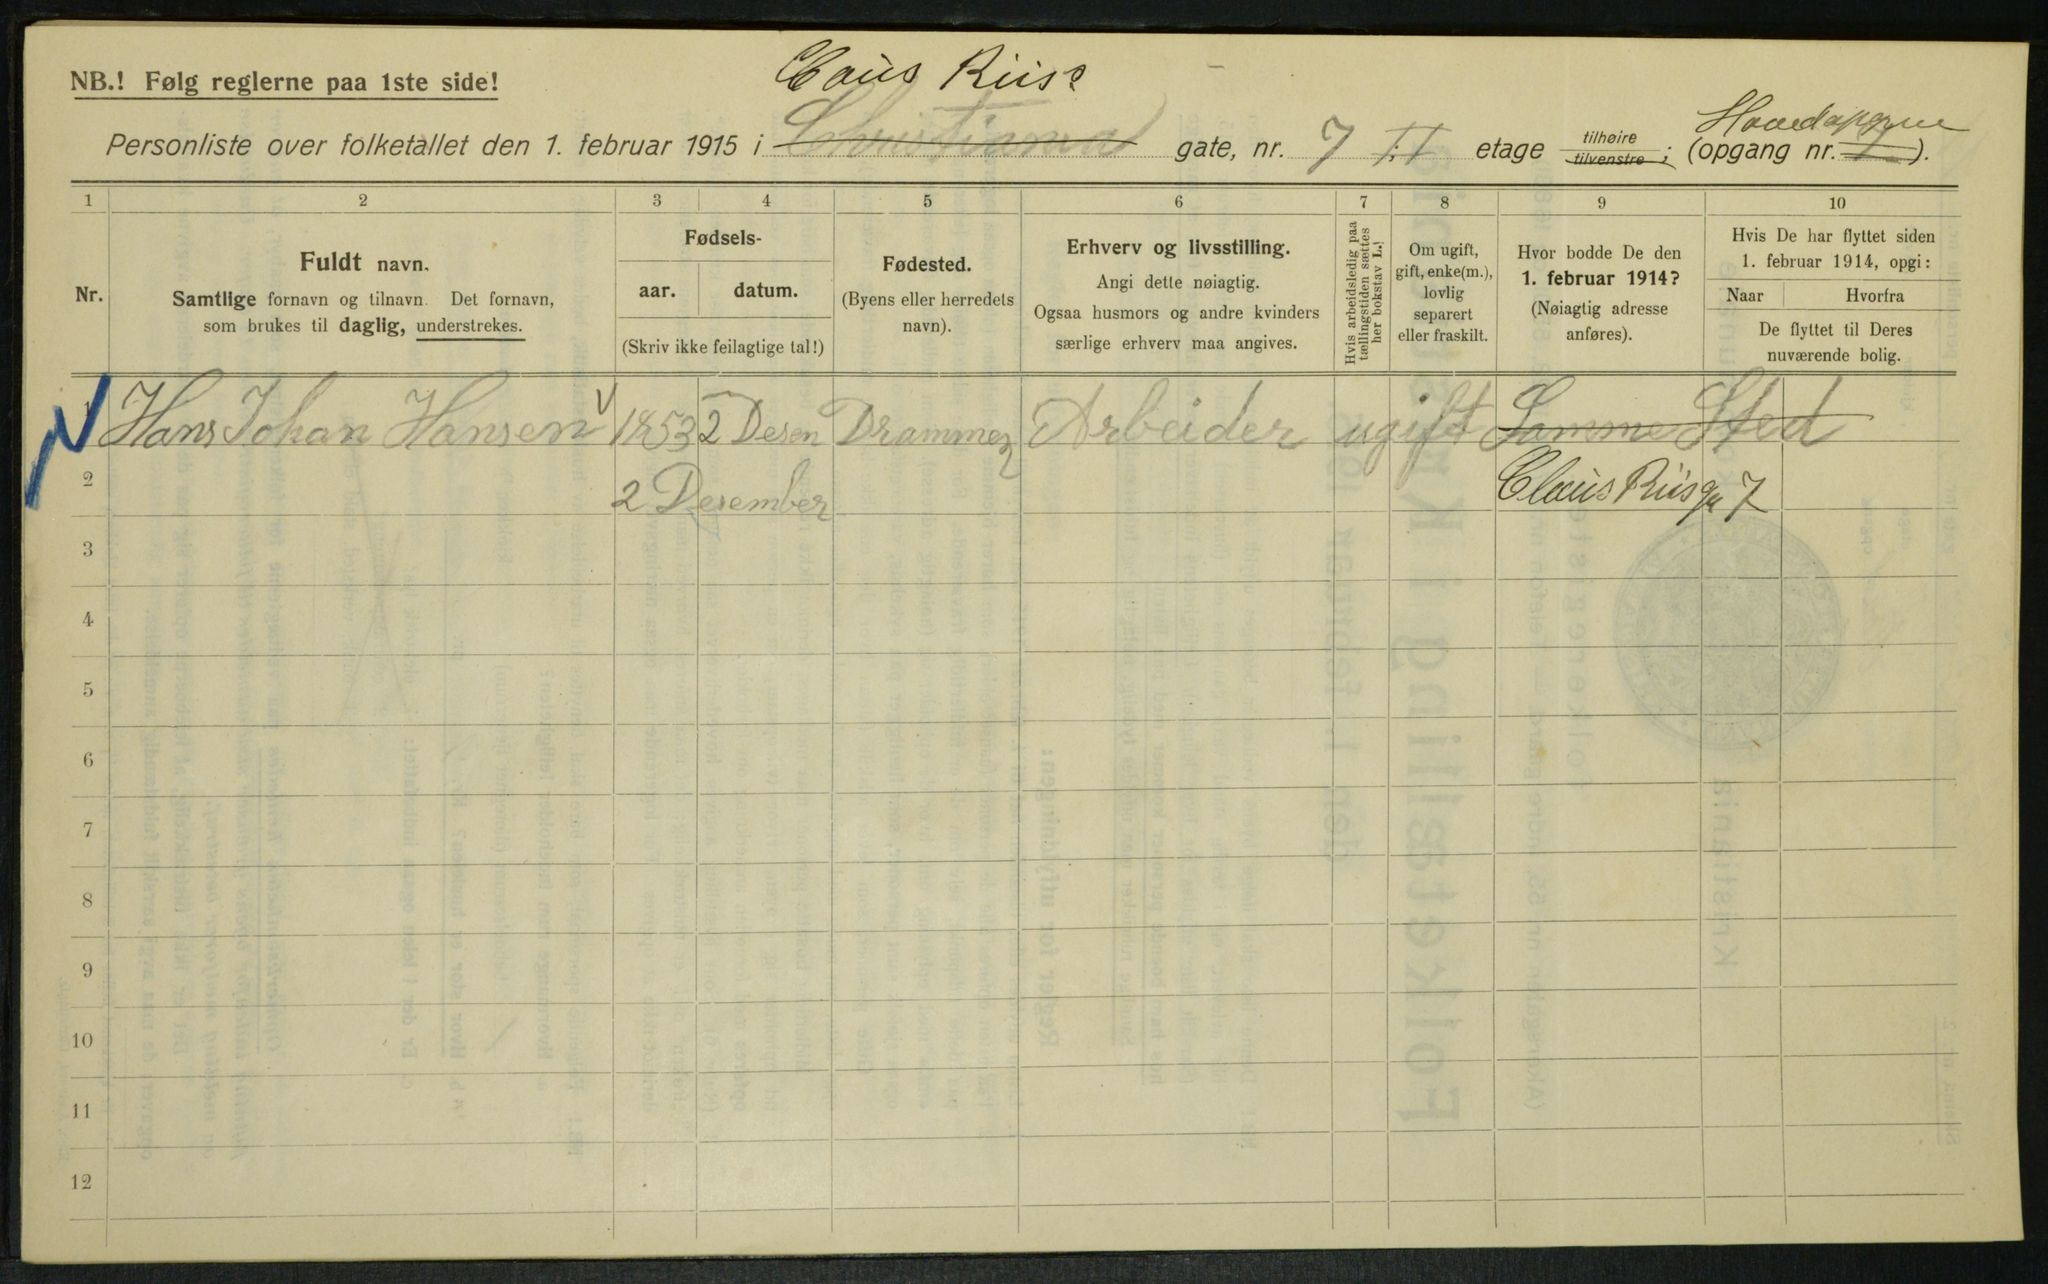 Claus Riis
NB.! Følg reglerne paa 1ste side!
Personliste over folketallet den 1. februar 1915 i Christiania gate, nr. 7 II etage tilhøire tilvenstre; (opgang nr. 1).
1 2 3 4 5 6 7 8 9 10
Nr.
Fuldt navn.
Samtlige fornavn og tilnavn. Det fornavn,
som brukes til daglig, understrekes.
Fødsels-
aar. datum.
(Skriv ikke feilagtige tal!)
Fødested.
(Byens eller herredets
navn).
Erhverv og livsstilling.
Angi dette nøiagtig.
Ogsaa husmors og andre kvinders
særlige erhverv maa angives.
Hvis arbeidsledig paa
tællingstiden sættes
her bokstav L.!
Om ugift,
gift, enke(m.),
lovlig
separert
eller fraskilt.
Hvor bodde De den
1. februar 1914?
(Nøiagtig adresse
anføres).
Hvis De har flyttet siden
1. februar 1914, opgi:
Naar Hvorfra
De flyttet til Deres
nuværende bolig.
1 Hans Johan Hansen 1853 2 Desen Drammen Arbeider ugift Samme Sted
2 2 Desember Claus Riisg 7
3
4
5
6
7
8
9
10
11
12